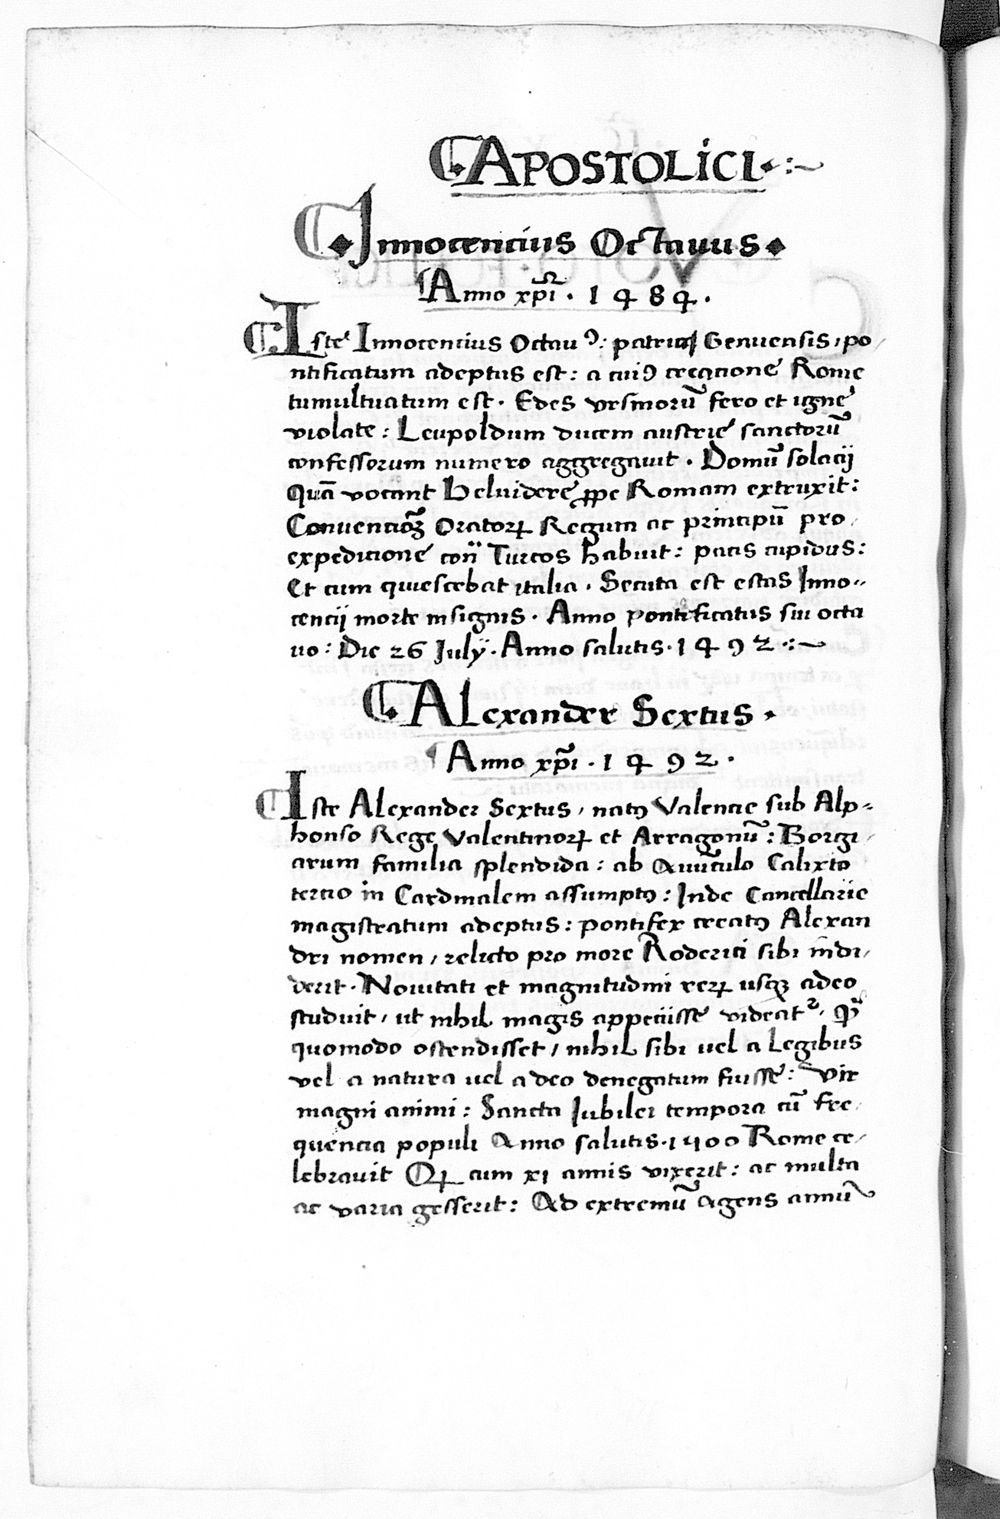 APOSTOLICI
Innocencius Octavus
Anno xp̄i · 1484 ·
Iste Innocencius Octauꝰ: patria Genuensis, po
ntificatum adeptus est: a cuiꝰ creacione Rome
tumultuatum est · Edes vrsinorū fero et igne
violate: Leupoldum ducem austrie sanctorū
confessorum numero aggregauit · Domū solacij
Quā vocant Beluidere ꝓpe Romam extruxit:
Conuencioꝫ Oratorꝝ Regum ac principū pro
expedicione con̄ Turcos habuit: pacis cupidus:
Et cum quiescebat italia · Secuta est estas Inno-
cencij morte insignis · Anno pontificatus sui octa
uo: Die 26 July · Anno salutis · 1492 ·
Alexander Sextus ·
Anno xp̄i · 1492 ·
Iste Alexander Sextus, natꝰ Valencie sub Alp-
honso Rege Valentinorꝝ et Arragonū: Borgi
arum familia splendida: ab Auūculo Calixto
tercio in Cardinalem assumptꝰ: Inde Cancellarie
magistratum adeptus: pontifex creatꝰ Alexan
dri nomen, relicto pro more Roderici sibi indi
derit · Nouitati et magnitudini rerꝝ usqꝫ adeo
studuit, ut nihil magis appeciisse videatᷣ, Qͫ
quomodo ostendisset, nihil sibi uel a legibus
vel a natura uel a deo denegatum fuisse: Vir
magni animi: Sancta Iubilei tempora cū fre
quencia populi Anno salutis · 1500 Rome ce
lebrauit Qꝝ cum xi annis vixerit: ac multa
ac varia gesserit: Ad extremū agens annū